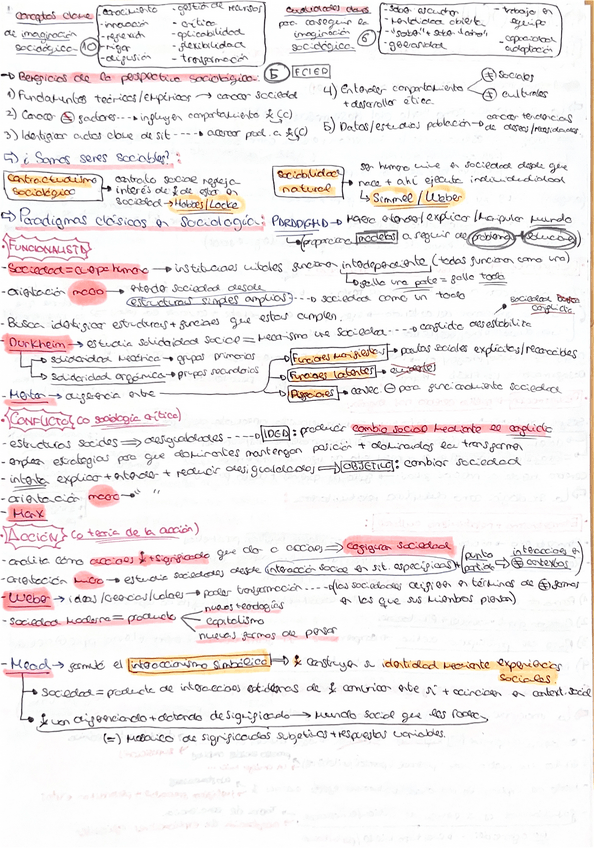 conceptos clave de imaginación sociológica (10)
- conocimiento
- innovación
- reflexión
- rigor
- difusión
- gestión de marcos
- crítica
- aplicabilidad
- flexibilidad
- transformación
cualidades clave para conseguir la imaginación sociológica (6)
- saber escuchar
- mentalidad abierta
- "saber" + saber cómo"
- generosidad
- trabajo en equipo
- capacidad adaptación
→ Beneficios de la perspectiva sociológica: (5) FCIED
1) Fundamentos teóricos/empíricos → conocer sociedad
2) Conocer factores ---→ influyen comportamiento (C)
3) Identificar actos clave de sit ----→ conocer
4) Entender comportamiento + desarrollo ética
≠ sociales
≠ culturales
5) Datos/estudios población → conocer tendencias de deseos/necesidades
⇒ ¿Somos seres sociables?:
contractualismo sociológico → contrato social refleja interés de de estar en sociedad → Hobbes/Locke
sociabilidad natural → ser humano vive en sociedad desde que nace + ahí ejecuta individualidad
↳ Simmel / Weber
⇒ Paradigmas clásicos en sociología: PARADIGMA → Marco entender/explicar/manipular mundo
↳ proporciona modelos a seguir de problemas + soluciones
· FUNCIONALISTA
- Sociedad = cuerpo humano → instituciones vitales funcionan interdependiente (todas funcionan como una)
↳ falla una parte = falla todo
- orientación macro → entender sociedad desde estructuras simples amplias ---→ sociedad como un todo
- Busca identificar estructuras + funciones que estas cumplen.
- Durkheim → estudia solidaridad social = mecanismo une sociedad ----→ conflicto desestabiliza
→ solidaridad mecánica → grupos primarios
→ solidaridad orgánica → grupos secundarios
- Merton → diferencia entre
→ Funciones Manifiestas → pautas sociales explícitas/reconocibles
→ Funciones latentes →
→ Disfunciones → consec ⊖ para funcionamiento sociedad
· CONFLICTO (o sociología crítica)
- estructuras sociales ⇒ desigualdades ----→ IDEA: producir cambio social mediante el conflicto
- emplea estrategias para que dominantes mantengan posición + dominados la transformen
- intenta explicar + entender + reducir desigualdades → OBJETIVO: cambiar sociedad
- orientación macro → " "
- Marx
· ACCIÓN (o teoría de la acción)
- analiza cómo acciones + significado que dan a acciones ⇒ configuran sociedad
- orientación micro → estudia sociedades desde (interacción social en sit. específicas) punto partida → interacciones en ≠ contextos
- Weber → ideas/creencias/valores → poder transformación ----→ (las sociedades difieren en términos de ≠ formas en las que sus miembros piensan)
- sociedad moderna = producto
nuevas tecnologías
capitalismo
nuevas formas de pensar
- Mead → formuló el interaccionismo simbólico ⇒ construyen su identidad mediante experiencias sociales
→ Sociedad = producto de interacciones cotidianas de al comunicar entre sí + coinciden en context. social
→ van diferenciando + dotando de significado → mundo social que les rodea
(=) Mosaico de significados subjetivos + respuestas variables.